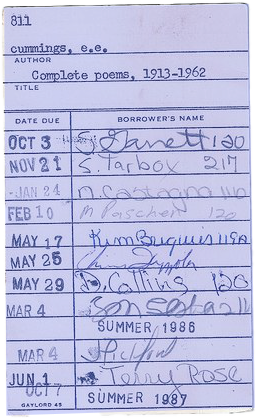 811
cummings, e.e.
AUTHOR
Complete poems, 1913-1962
TITLE
DATE DUE BORROWER'S NAME
OCT 3 S. Garrett 120
NOV 21 S. Tarbox 217
JAN 24 M. Castagna 116
FEB 10 M Paschen 120
MAY 17 Kim 119A
MAY 25
MAY 29 D. Collins 120
MAR 4 211
SUMMER 1986
MAR 4
JUN 1 Terry Rose
OCT 7 SUMMER 1987
GAYLORD 45